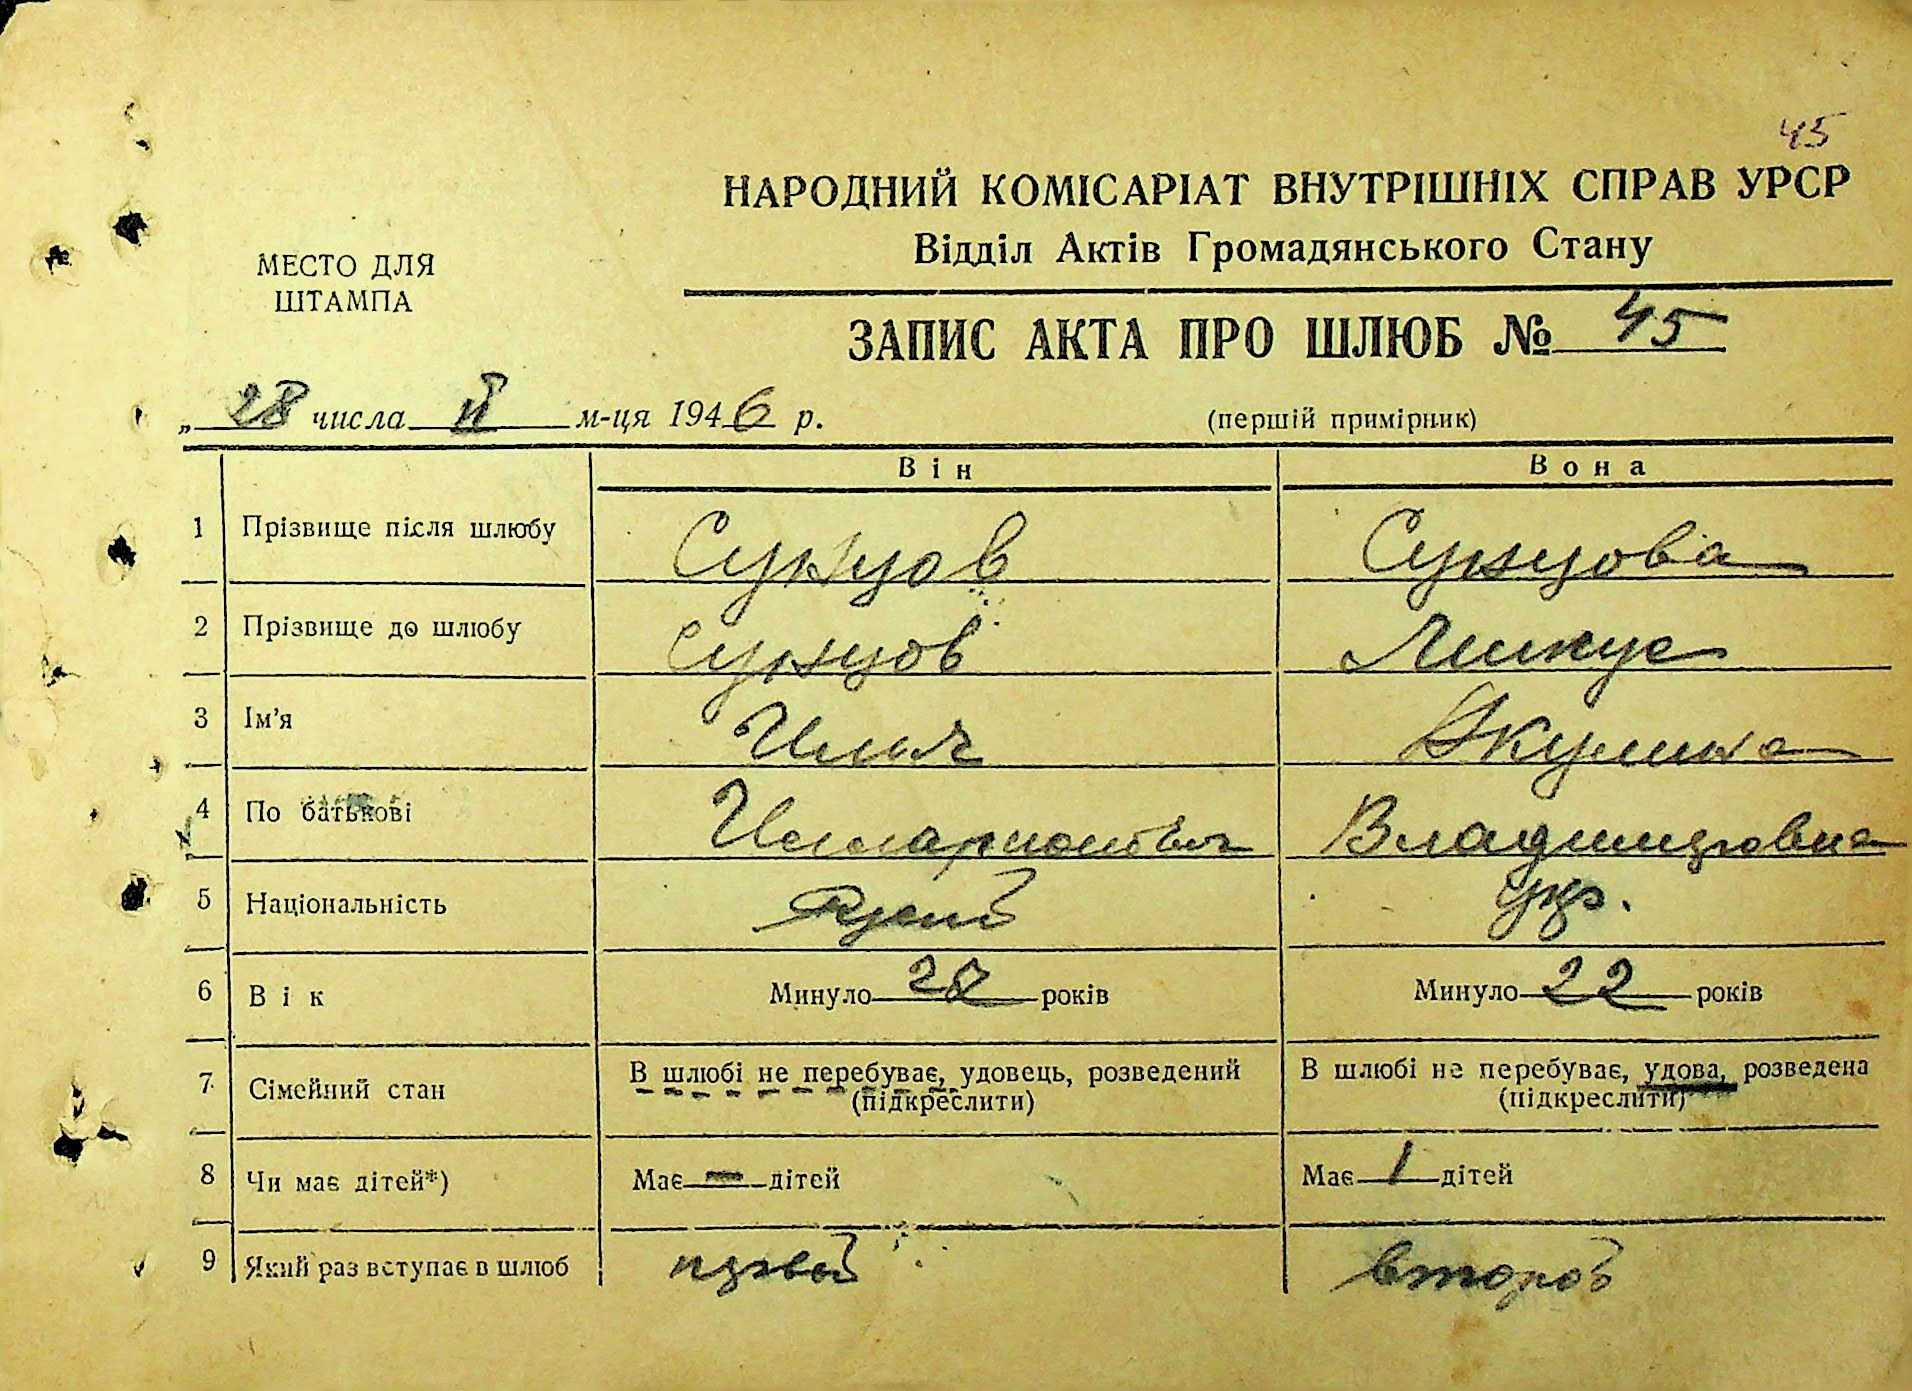 45
НАРОДНИЙ КОМІСАРІАТ ВНУТРІШНІХ СПРАВ УРСР
Відділ Актів Громадянського Стану
МЕСТО ДЛЯ
ШТАМПА
ЗАПИС АКТА ПРО ШЛЮБ № 45
„ 28 числа II м-ця 1946 р.
(першій примірник)
Він Вона
1 Прізвище після шлюбу Сунцов Сунцова
2 Прізвище до шлюбу Сунцов
3 Ім'я Илья Акулина
4 По батькові Илларионович Владимировна
5 Національність укр.
6 Вік Минуло 28 років Минуло 22 років
7 Сімейний стан В шлюбі не перебуває, удовець, розведений В шлюбі не перебуває, удова, розведена
(підкреслити) (підкреслити)
8 Чи має дітей*) Має — дітей Має 1 дітей
9 Який раз вступає в шлюб первый второй